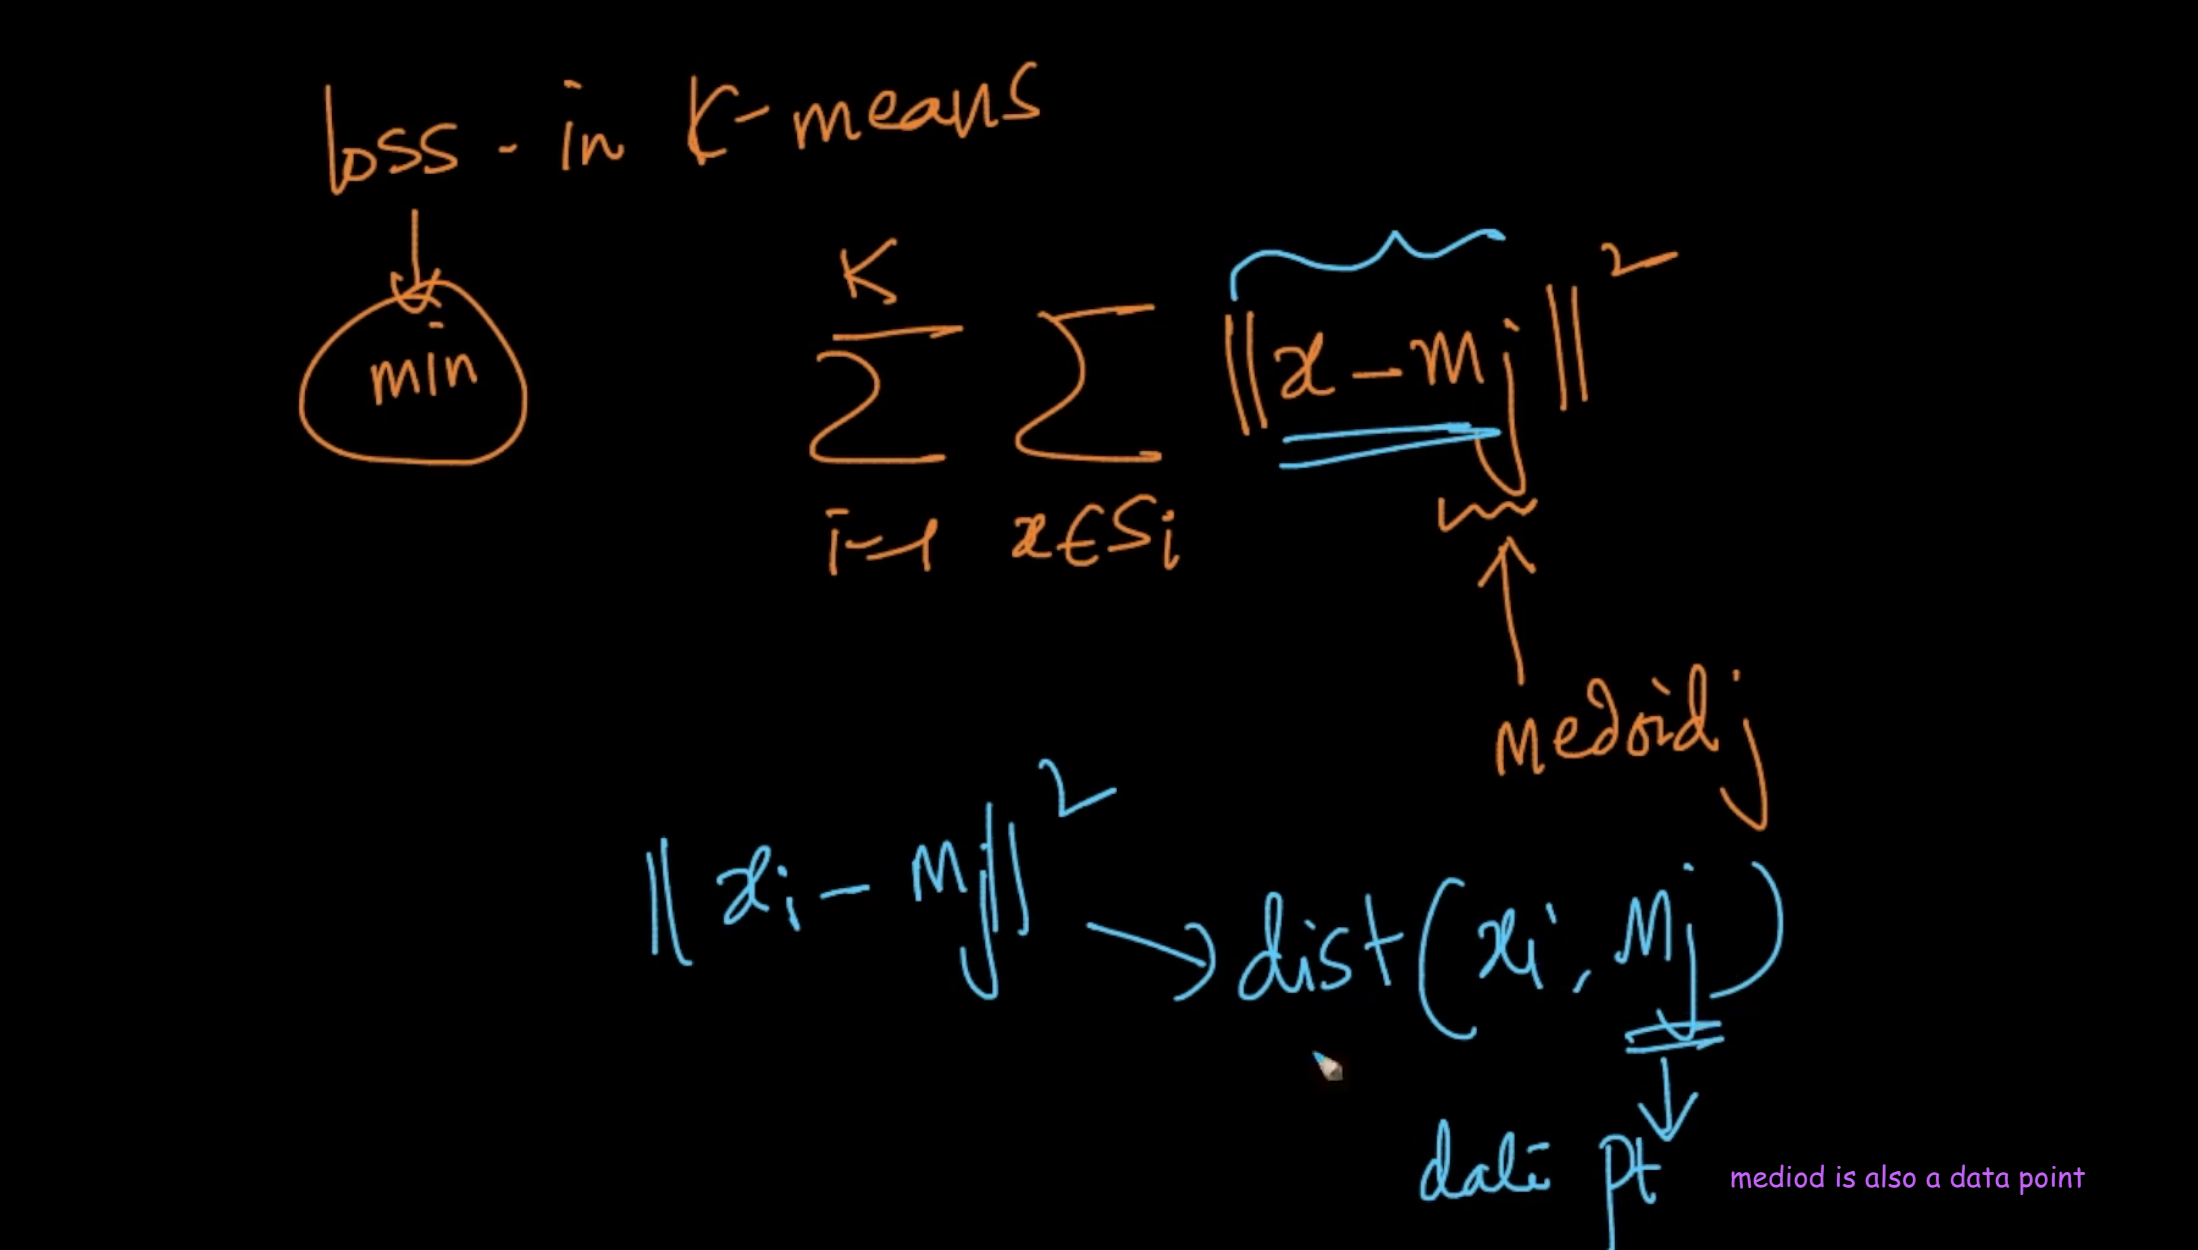 loss - in K-means
min
K
Σ Σ ||x - mj||²
i=1 x∈Si
medoid j
||xi - mj||² → dist(xi, mj)
data pt
mediod is also a data point